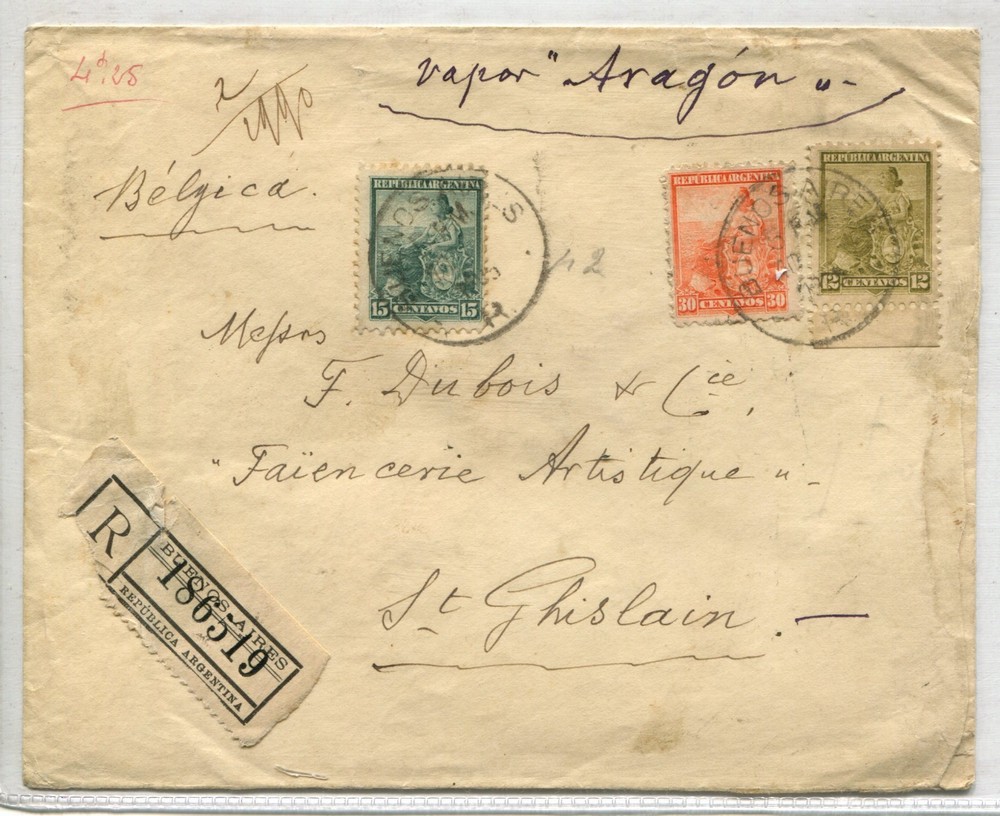 vapor "Aragón"-
Bélgica.
REPÚBLICA ARGENTINA
15 CENTAVOS 15
REPÚBLICA ARGENTINA
30 CENTAVOS 30
REPÚBLICA ARGENTINA
12 CENTAVOS 12
BUENOS AIRES
Messrs
F. Dubois & Cie.
"Faïencerie Artistique"-
St Ghislain. —
R
BUENOS AIRES
186519
REPÚBLICA ARGENTINA